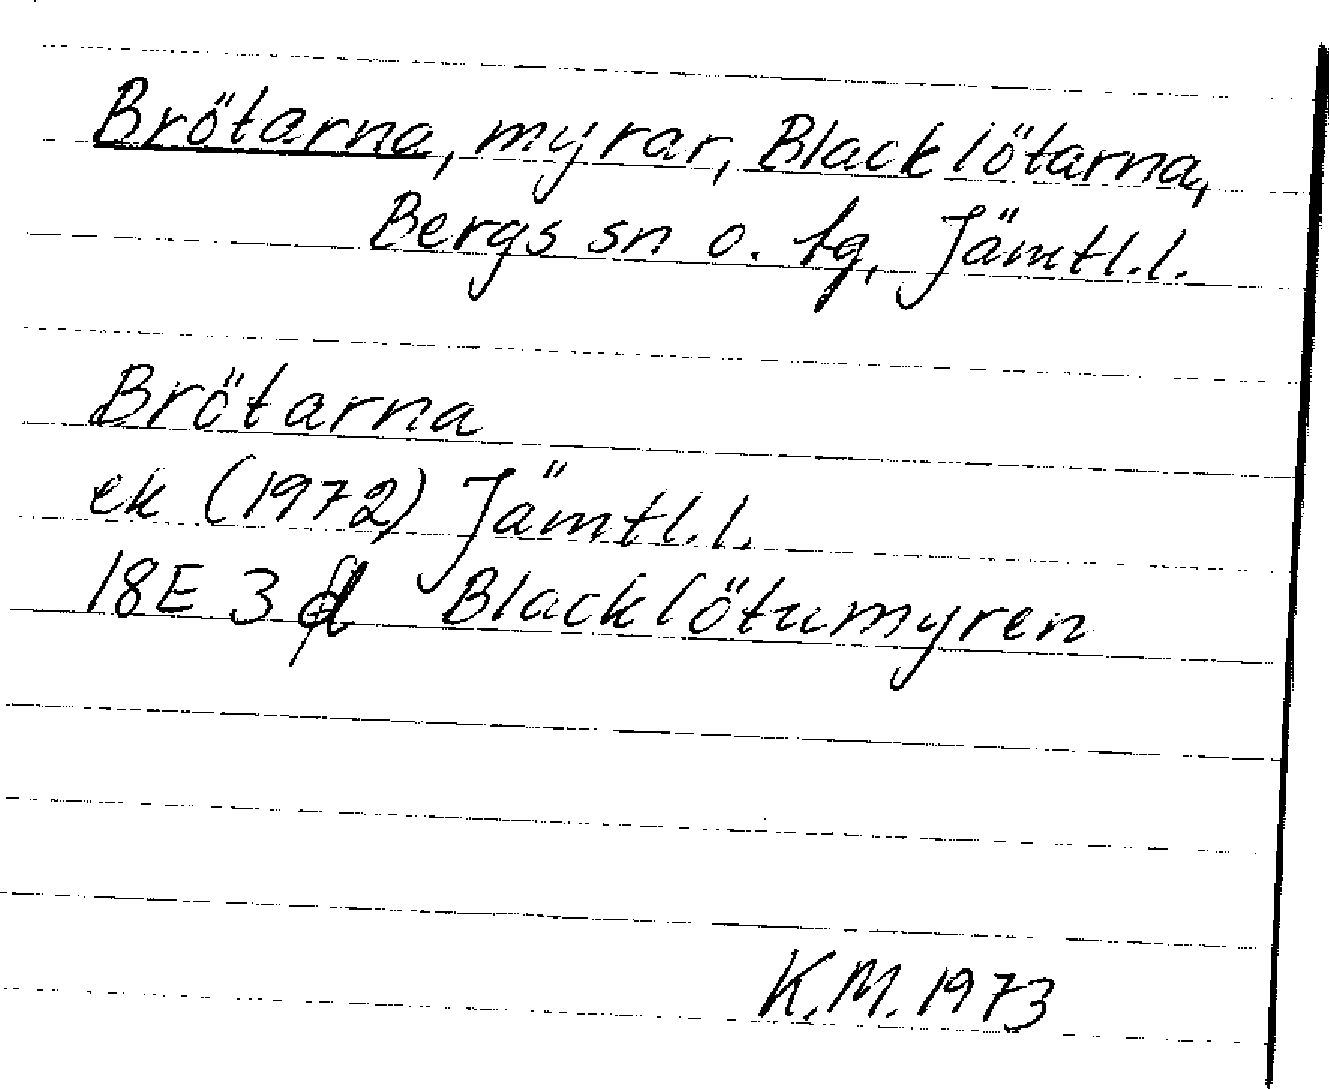 Brötarna, myrar, Blacklötarna,
Bergs sn o. tg, Jämtl.l.
Brötarna
ek (1972) Jämtl.l.
18E 3d Blacklötumyren
K.M. 1973